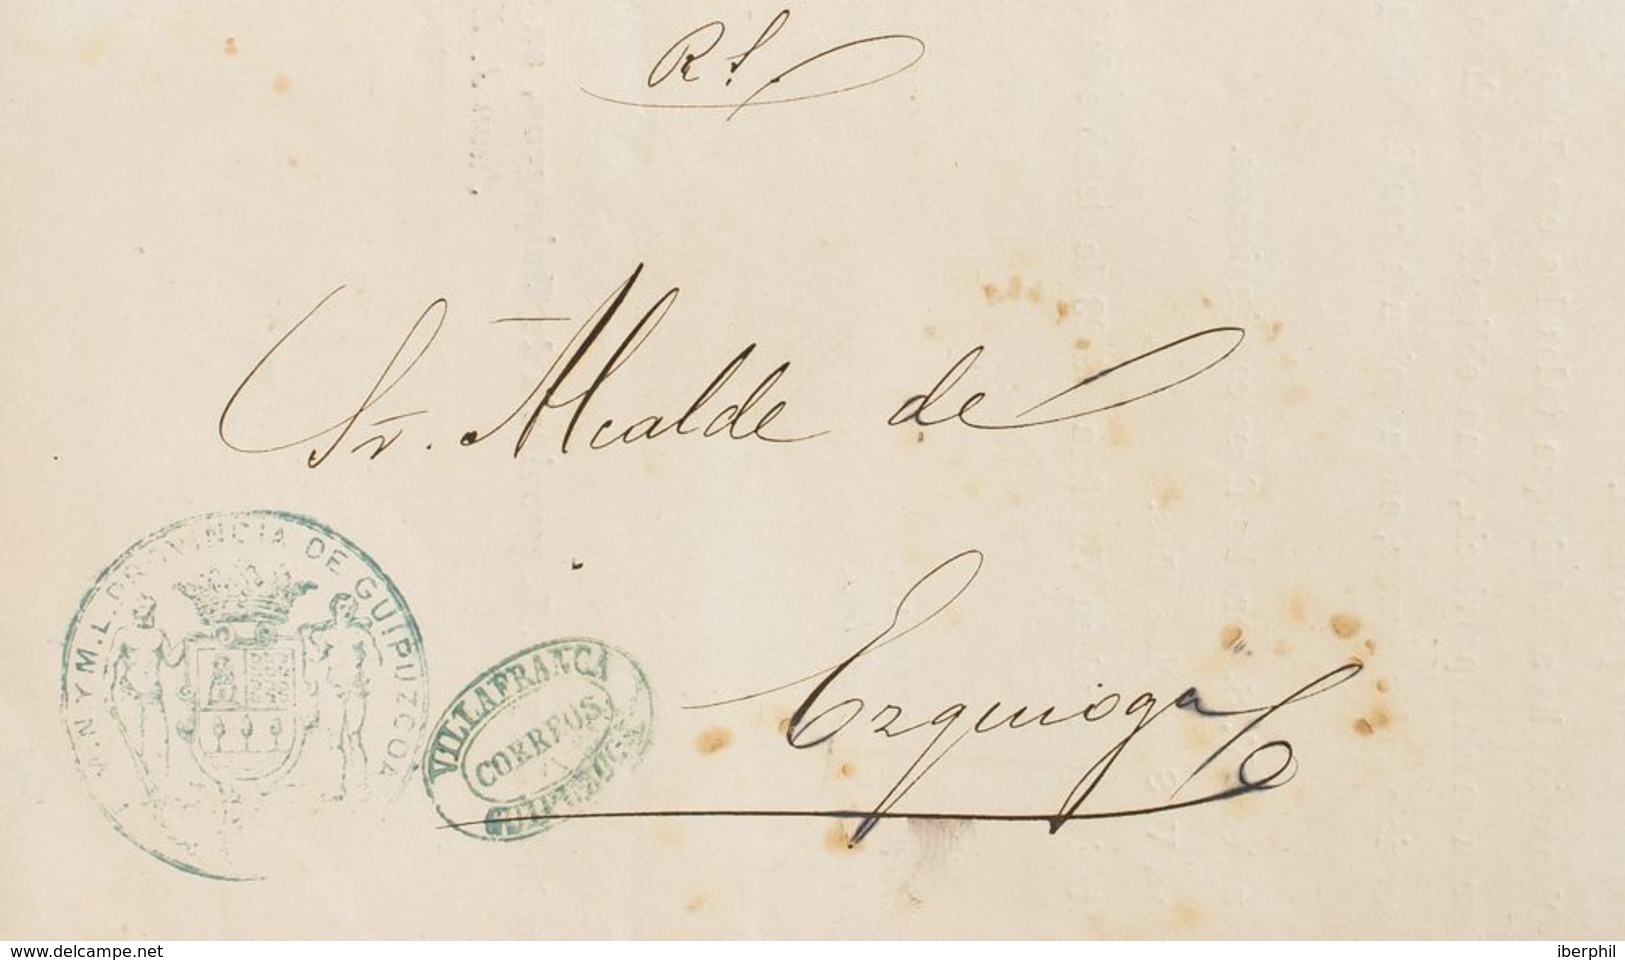 R. S.
Sr. Alcalde de
Ezquioga
M. N Y M. L. PROVINCIA DE GUIPUZCOA
VILLAFRANCA
CORREOS
GUIPUZCOA
www.delcampe.net
iberphil